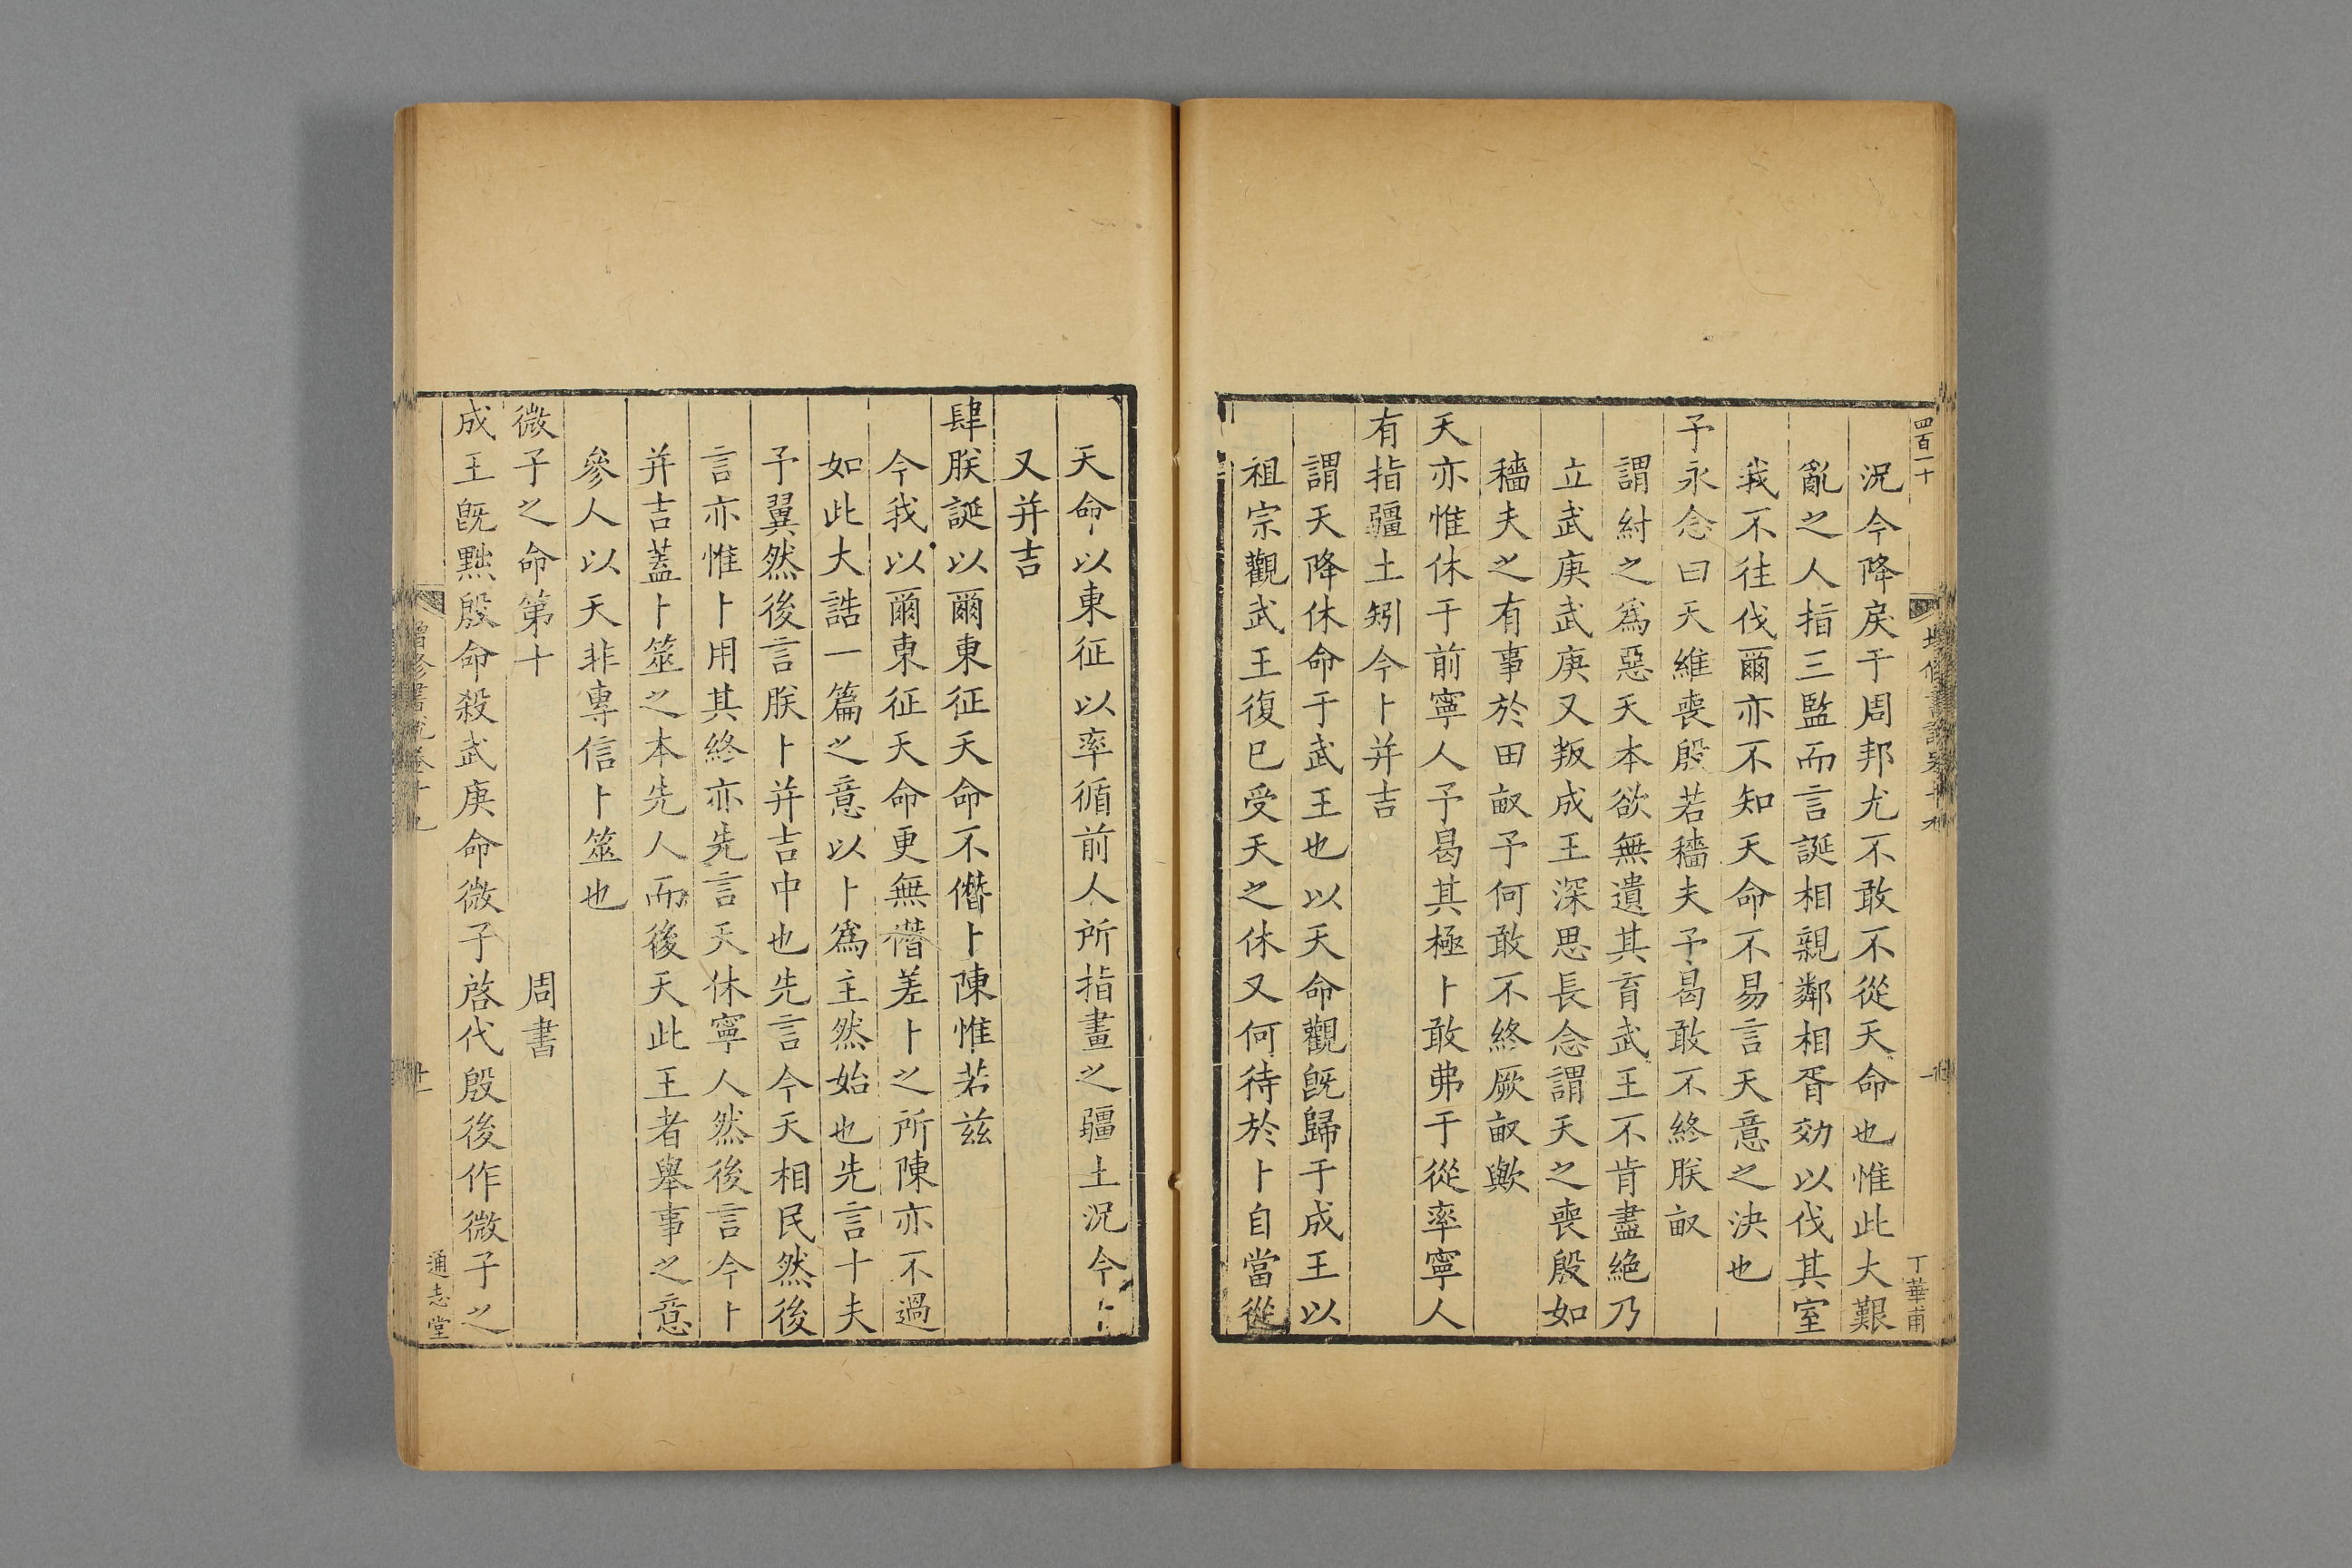 四百一十
丁華甫
況今降戾于周邦尤不敢不從天命也惟此大艱
亂之人指三監而言誕相親鄰相胥効以伐其室
我不往伐爾亦不知天命不易言天意之決也
予永念曰天維喪殷若穡夫予曷敢不終朕畝
謂紂之爲惡天本欲無遺其育武王不肯盡絶乃
立武庚武庚又叛成王深思長念謂天之喪殷如
穡夫之有事於田畝予何敢不終厥畝歟
天亦惟休于前寧人予曷其極卜敢弗于從率寧人
有指疆土矧今卜并吉
謂天降休命于武王也以天命觀旣歸于成王以
祖宗觀武王復巳受天之休又何待於卜自當從
天命以東征以率循前人所指畫之疆土況今卜
又并吉
肆朕誕以爾東征天命不僭卜陳惟若兹
今我以爾東征天命更無僭差卜之所陳亦不過
如此大誥一篇之意以卜爲主然始也先言十夫
予翼然後言朕卜并吉中也先言今天相民然後
言亦惟卜用其終亦先言天休寧人然後言今卜
并吉蓋卜筮之本先人而後天此王者舉事之意
參人以天非專信卜筮也
微子之命第十 周書
成王旣黜殷命殺武庚命微子啓代殷後作微子之
增修書說卷十九
廿一
通志堂